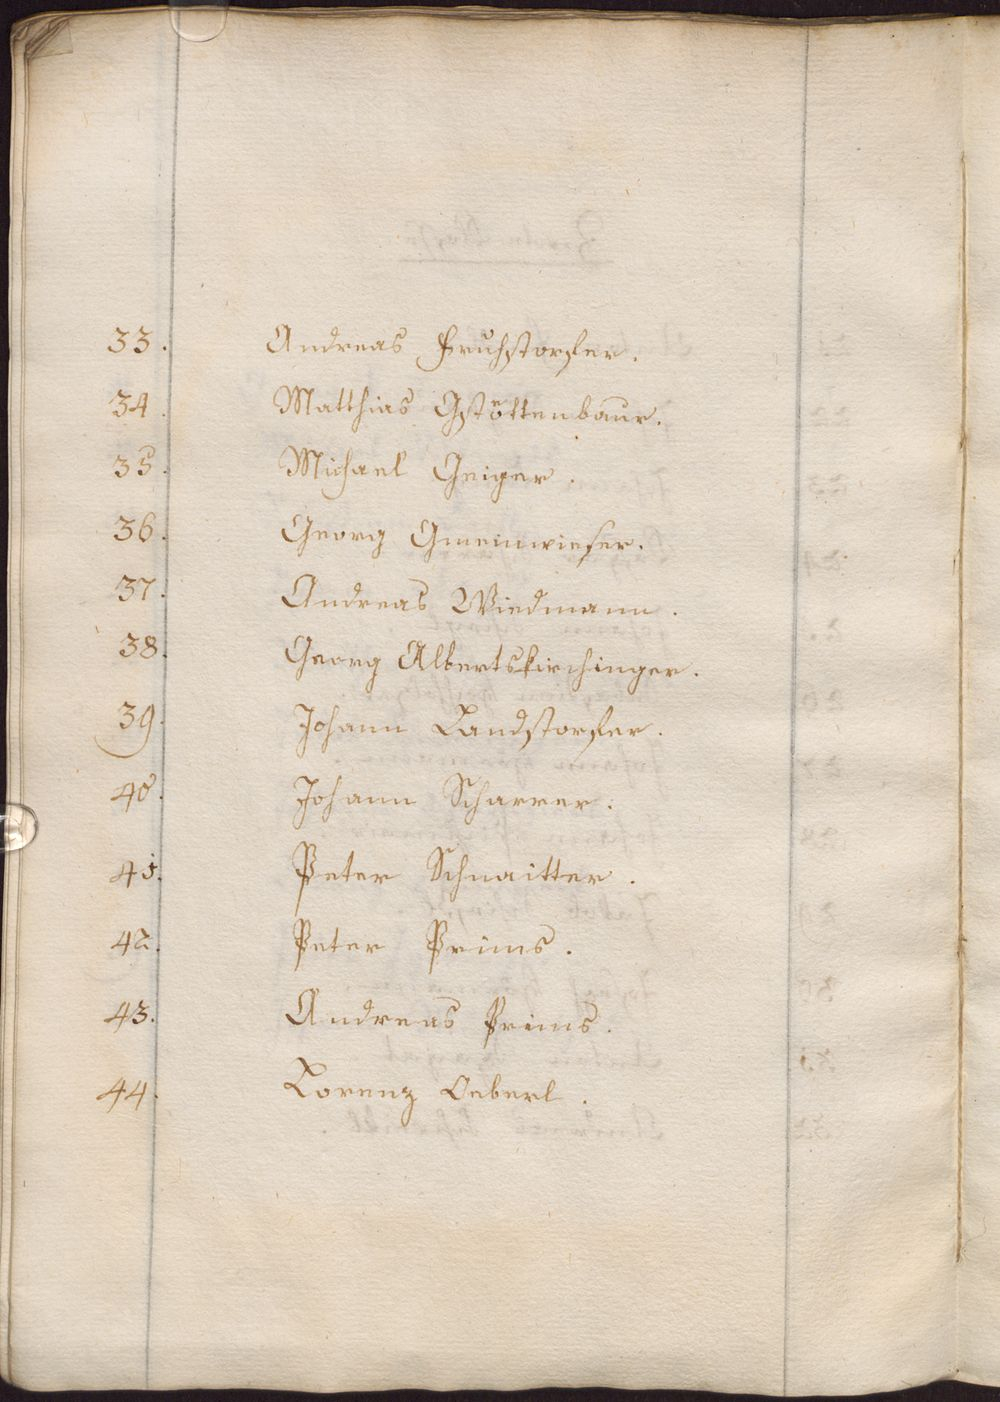 33. Andreas Fruhstorfer.
34. Matthias Gstöttenbaur.
35. Michael Geiger.
36. Georg Gmeinwieser.
37. Andreas Wiedmann.
38. Georg Albertskirchinger.
39. Johann Landstorfer.
40. Johann Scharrer.
41. Peter Schnaitter.
42. Peter Prims.
43. Andreas Prims.
44. Lorenz Oeberl.